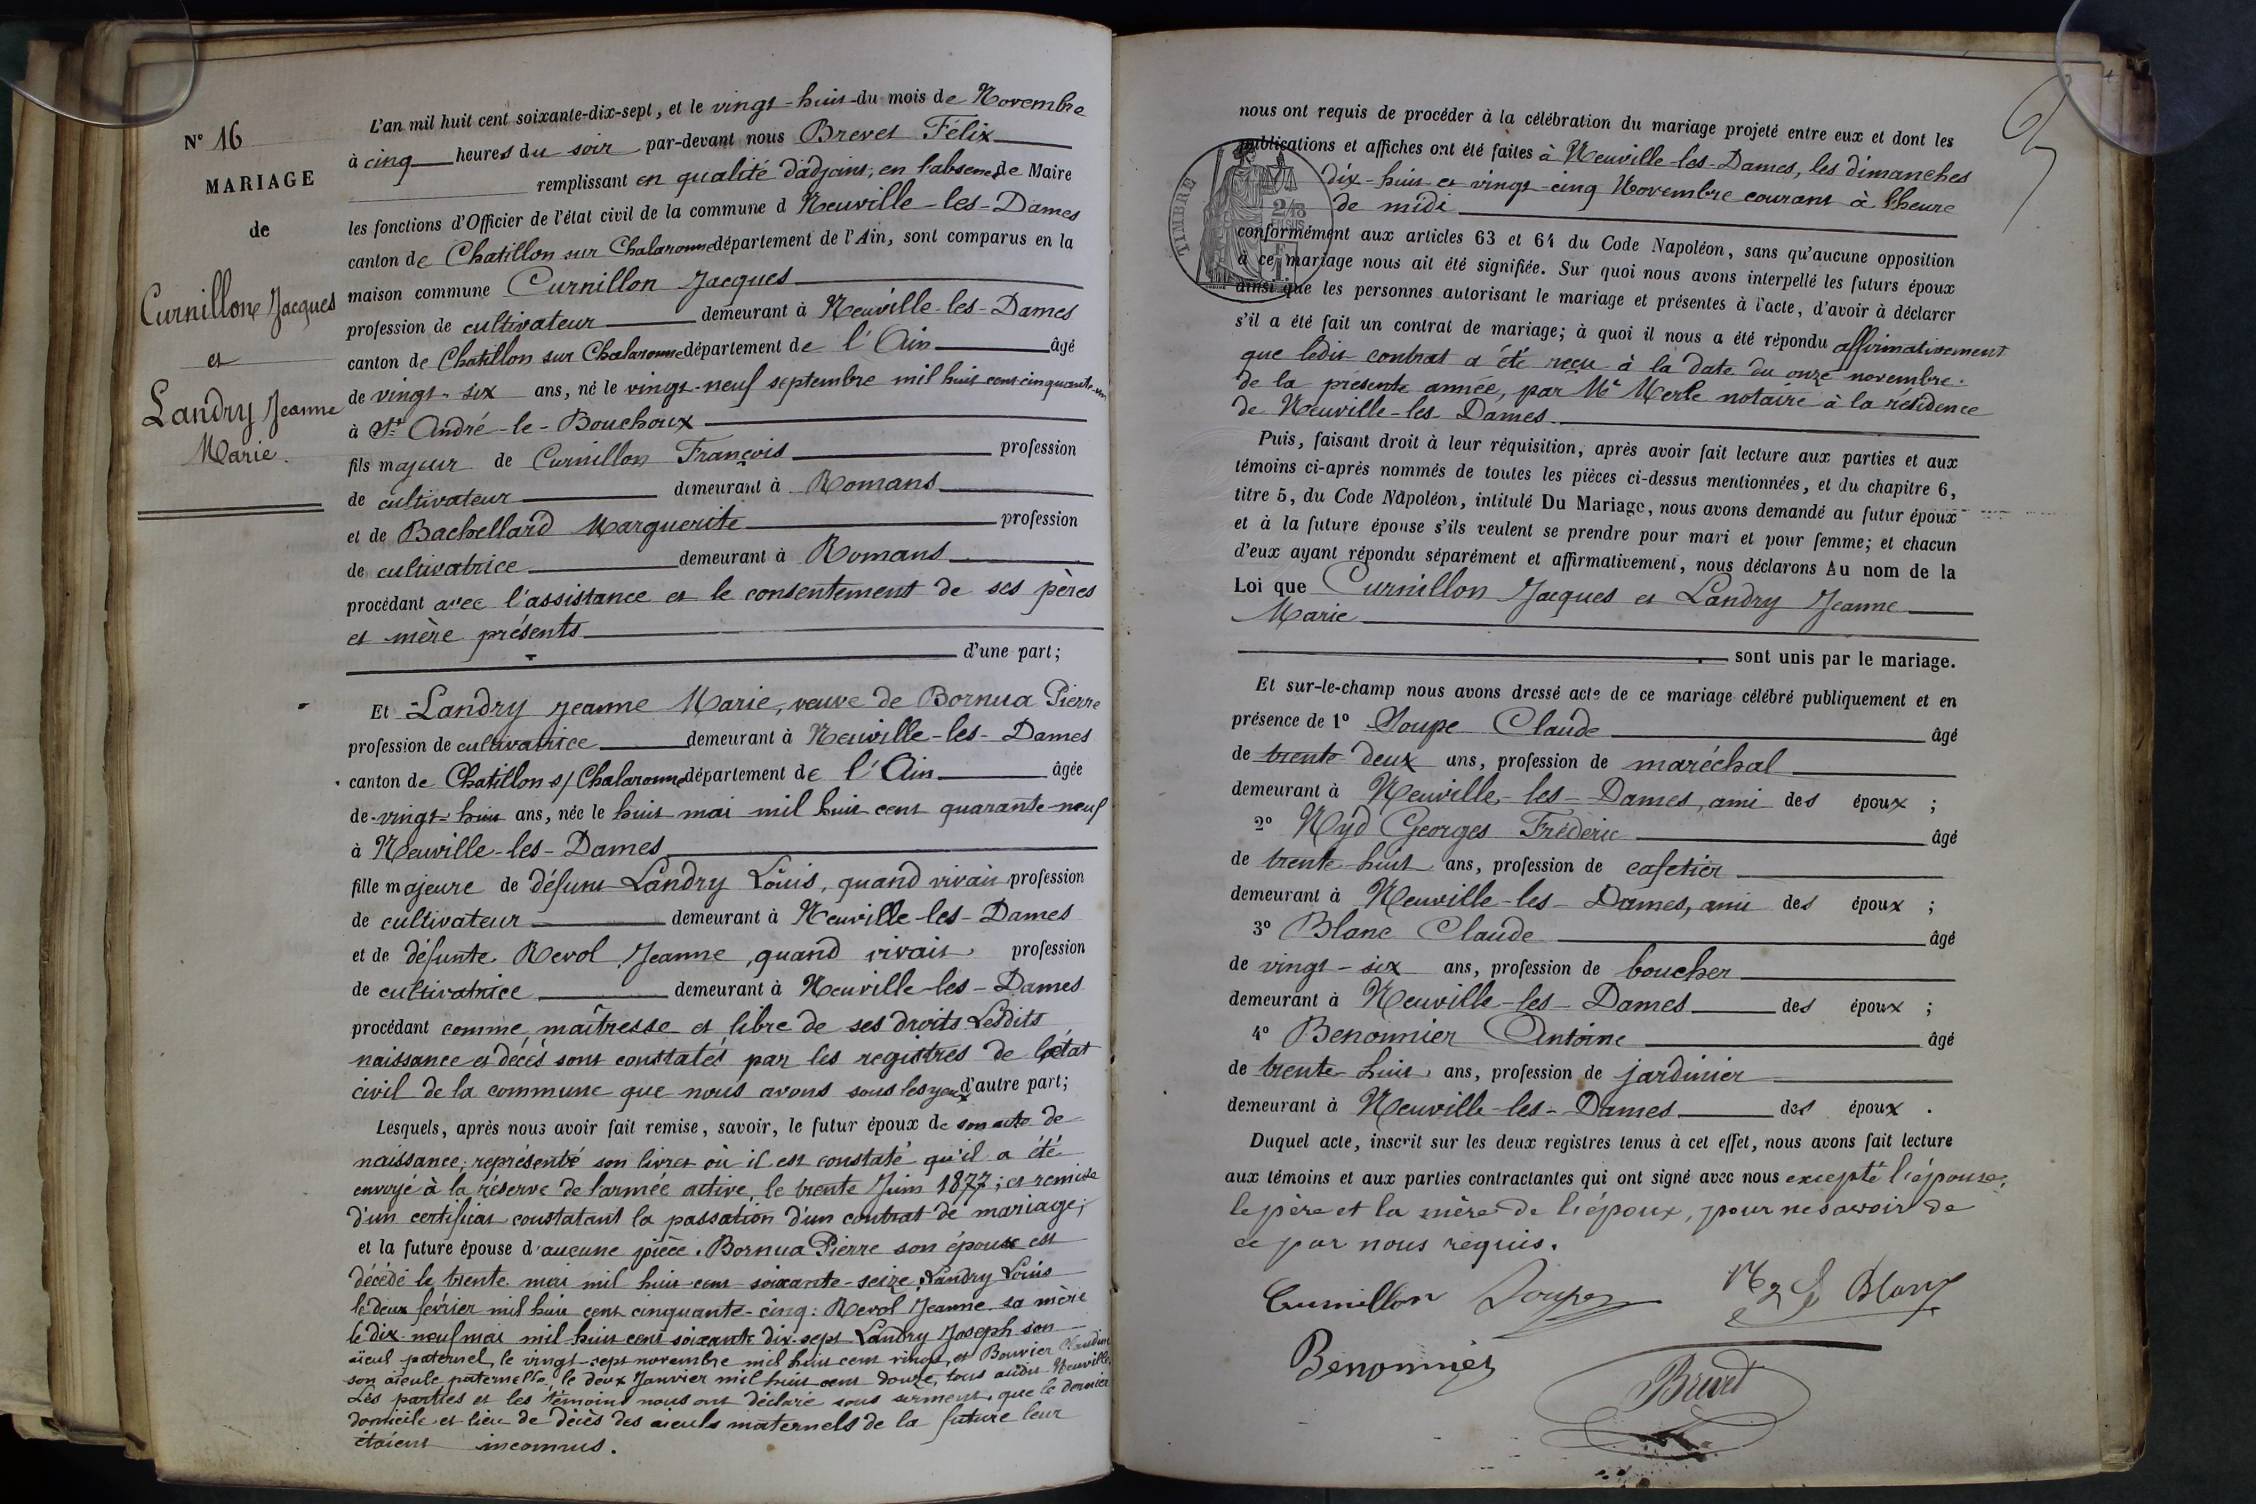 N° 16
MARIAGE
de
Curnillon Jacques
et
Landry Jeanne
Marie.
L'an mil huit cent soixante-dix-sept, et le vingt-huit du mois de Novembre
à cinq heures du soir par-devant nous Brevet Félix
remplissant en qualité d'adjoint, en l'absence de Maire
les fonctions d'Officier de l'état civil de la commune d Neuville-les-Dames
canton de Chatillon sur Chalaronne département de l'Ain, sont comparus en la
maison commune Curnillon Jacques
profession de cultivateur demeurant à Neuville-les-Dames
canton de Chatillon sur Chalaronne département de l'Ain âgé
de vingt-six ans, né le vingt-neuf septembre mil huit cent cinquante-un
à St André-le-Bouchoux
fils majeur de Curnillon François profession
de cultivateur demeurant à Romans
et de Bachellard Marguerite profession
de cultivatrice demeurant à Romans
procédant avec l'assistance et le consentement de ses pères
et mère présents
d'une part;
Et Landry Jeanne Marie, veuve de Bornua Pierre
profession de cultivatrice demeurant à Neuville-les-Dames
canton de Chatillon s/ Chalaronne département de l'Ain âgée
de vingt-huit ans, née le huit mai mil huit cent quarante-neuf
à Neuville-les-Dames
fille majeure de défunt Landry Louis, quand vivait profession
de cultivateur demeurant à Neuville-les-Dames
et de défunte Revol Jeanne, quand vivait profession
de cultivatrice demeurant à Neuville-les-Dames
procédant comme maîtresse et libre de ses droits Lesdits
naissance et décès sont constatés par les registres de l'état
civil de la commune que nous avons sous les yeux d'autre part;
Lesquels, après nous avoir fait remise, savoir, le futur époux de son acte de
naissance; représenté son livret où il est constaté qu'il a été
envoyé à la réserve de l'armée active, le trente Juin 1877; et remise
d'un certificat constatant la passation d'un contrat de mariage;
et la future épouse d'aucune pièce. Bornua Pierre son époux est
décédé le trente mai mil huit cent soixante-seize; Landry Louis
le deux février mil huit cent cinquante-cinq: Revol Jeanne sa mère
le dix-neuf mai mil huit cent soixante dix-sept Landry Joseph son
aïeul paternel, le vingt-sept novembre mil huit cent vingt, et Bouvier Claudine
son aïeule paternelle, le deux Janvier mil huit cent douze, tous audit Neuville.
Les parties et les témoins nous ont déclaré sous serment que le dernier
domicile et lieu de décès des aïeuls maternels de la future leur
étaient inconnus.
nous ont requis de procéder à la célébration du mariage projeté entre eux et dont les
publications et affiches ont été faites à Neuville-les-Dames, les dimanches
dix-huit et vingt-cinq Novembre courant à l'heure
de midi
TIMBRE
2/10
EN SUS
conformément aux articles 63 et 64 du Code Napoléon, sans qu'aucune opposition
à ce mariage nous ait été signifiée. Sur quoi nous avons interpellé les futurs époux
ainsi que les personnes autorisant le mariage et présentes à l'acte, d'avoir à déclarer
s'il a été fait un contrat de mariage; à quoi il nous a été répondu affirmativement
que ledit contrat a été reçu à la date du onze novembre
de la présente année, par Me Merle notaire à la résidence
de Neuville-les Dames.
Puis, faisant droit à leur réquisition, après avoir fait lecture aux parties et aux
témoins ci-après nommés de toutes les pièces ci-dessus mentionnées, et du chapitre 6,
titre 5, du Code Napoléon, intitulé Du Mariage, nous avons demandé au futur époux
et à la future épouse s'ils veulent se prendre pour mari et pour femme; et chacun
d'eux ayant répondu séparément et affirmativement, nous déclarons Au nom de la
Loi que Curnillon Jacques et Landry Jeanne
Marie
sont unis par le mariage.
Et sur-le-champ nous avons dressé acte de ce mariage célébré publiquement et en
présence de 1° Soupe Claude âgé
de trente deux ans, profession de maréchal
demeurant à Neuville-les-Dames, ami des époux;
2° Nyd Georges Fréderic âgé
de trente huit ans, profession de cafetier
demeurant à Neuville-les-Dames, ami des époux;
3° Blanc Claude âgé
de vingt-six ans, profession de boucher
demeurant à Neuville-les-Dames des époux;
4° Benonnier Antoine âgé
de trente-huit ans, profession de jardinier
demeurant à Neuville-les-Dames des époux.
Duquel acte, inscrit sur les deux registres tenus à cet effet, nous avons fait lecture
aux témoins et aux parties contractantes qui ont signé avec nous excepté l'épouse,
le père et la mère de l'époux, pour ne savoir de
ce par nous requis.
Curnillon Soupe Blanc
Benonnier
Brevet